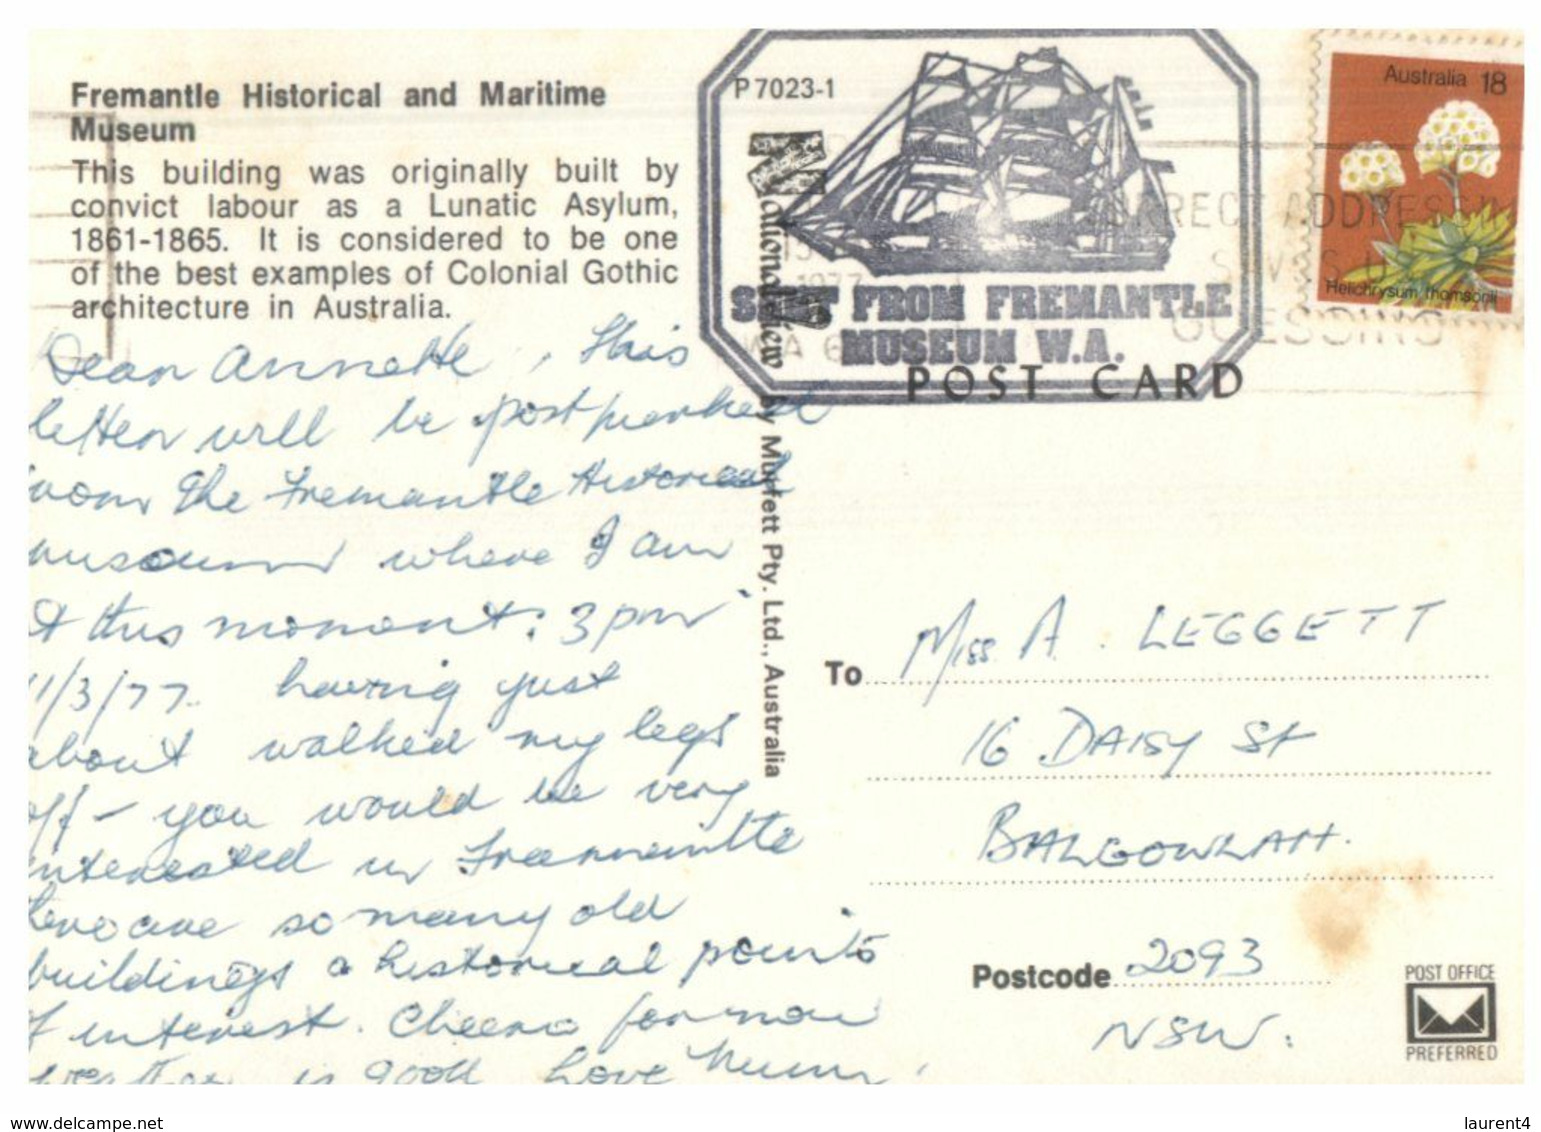 Fremantle Historical and Maritime
Museum
This building was originally built by
convict labour as a Lunatic Asylum,
1861-1865. It is considered to be one
of the best examples of Colonial Gothic
architecture in Australia.
Dear Annette, this
letter will be postmarked
from the Fremantle Historical
museum where I am
at this moment: 3pm
11/3/77. having just
about walked my legs
off - you would be very
interested in Freemantle
there are so many old
buildings & historical points
of interest. Cheerio for now
weather is good Love Mum
P7023-1
SENT FROM FREMANTLE
MUSEUM W.A.
1977
W A 6
CORRECT ADDRESS
SAVES US
GUESSING
POST CARD
Nucolorvue
by Murfett Pty. Ltd., Australia
Australia 18
Helichrysum thomsonii
To Miss A. LEGGETT
16 DAISY St
BALGOWLAH.
Postcode 2093
NSW.
POST OFFICE
PREFERRED
www.delcampe.net
laurent4